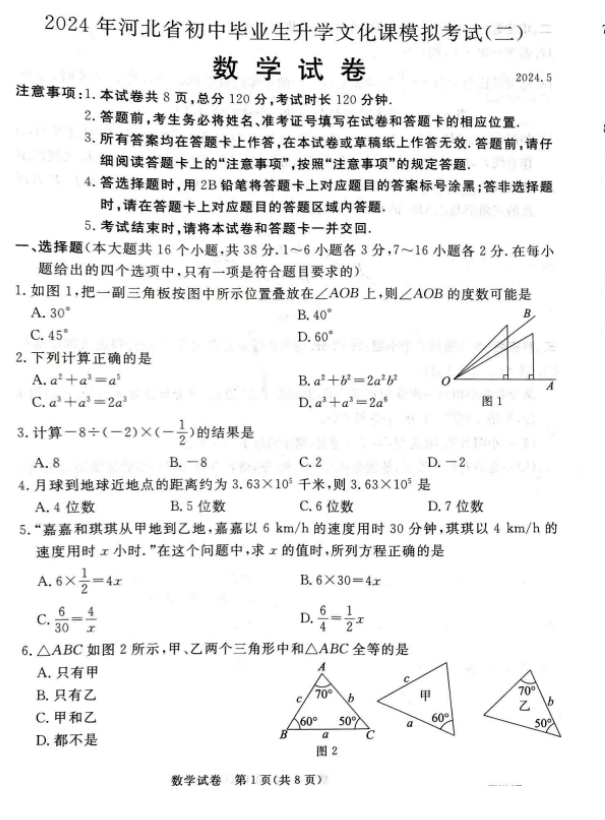 2024 年河北省初中毕业生升学文化课模拟考试(二)
数 学 试 卷
2024.5
注意事项:1. 本试卷共 8 页,总分 120 分,考试时长 120 分钟.
2. 答题前,考生务必将姓名、准考证号填写在试卷和答题卡的相应位置.
3. 所有答案均在答题卡上作答,在本试卷或草稿纸上作答无效. 答题前,请仔
细阅读答题卡上的“注意事项”,按照“注意事项”的规定答题.
4. 答选择题时,用 2B 铅笔将答题卡上对应题目的答案标号涂黑;答非选择题
时,请在答题卡上对应题目的答题区域内答题.
5. 考试结束时,请将本试卷和答题卡一并交回.
一、选择题(本大题共 16 个小题,共 38 分. 1～6 小题各 3 分,7～16 小题各 2 分. 在每小
题给出的四个选项中,只有一项是符合题目要求的)
1. 如图 1,把一副三角板按图中所示位置叠放在∠AOB 上,则∠AOB 的度数可能是
A. 30° B. 40°
C. 45° D. 60°
B
O
A
图 1
2. 下列计算正确的是
A. a²+a³=a⁵ B. a²+b²=2a²b²
C. a³+a³=2a³ D. a³+a³=2a⁶
3. 计算−8÷(−2)×(−1/2)的结果是
A. 8 B. −8 C. 2 D. −2
4. 月球到地球近地点的距离约为 3.63×10⁵ 千米,则 3.63×10⁵ 是
A. 4 位数 B. 5 位数 C. 6 位数 D. 7 位数
5. “嘉嘉和琪琪从甲地到乙地,嘉嘉以 6 km/h 的速度用时 30 分钟,琪琪以 4 km/h 的
速度用时 x 小时.”在这个问题中,求 x 的值时,所列方程正确的是
A. 6×1/2=4x B. 6×30=4x
C. 6/30=4/x D. 6/4=1/2x
6. △ABC 如图 2 所示,甲、乙两个三角形中和△ABC 全等的是
A. 只有甲
B. 只有乙
C. 甲和乙
D. 都不是
A
70°
c b
60° 50°
B a C
图 2
c
甲
60°
a
70°
乙 b
50°
数学试卷 第 1 页(共 8 页)